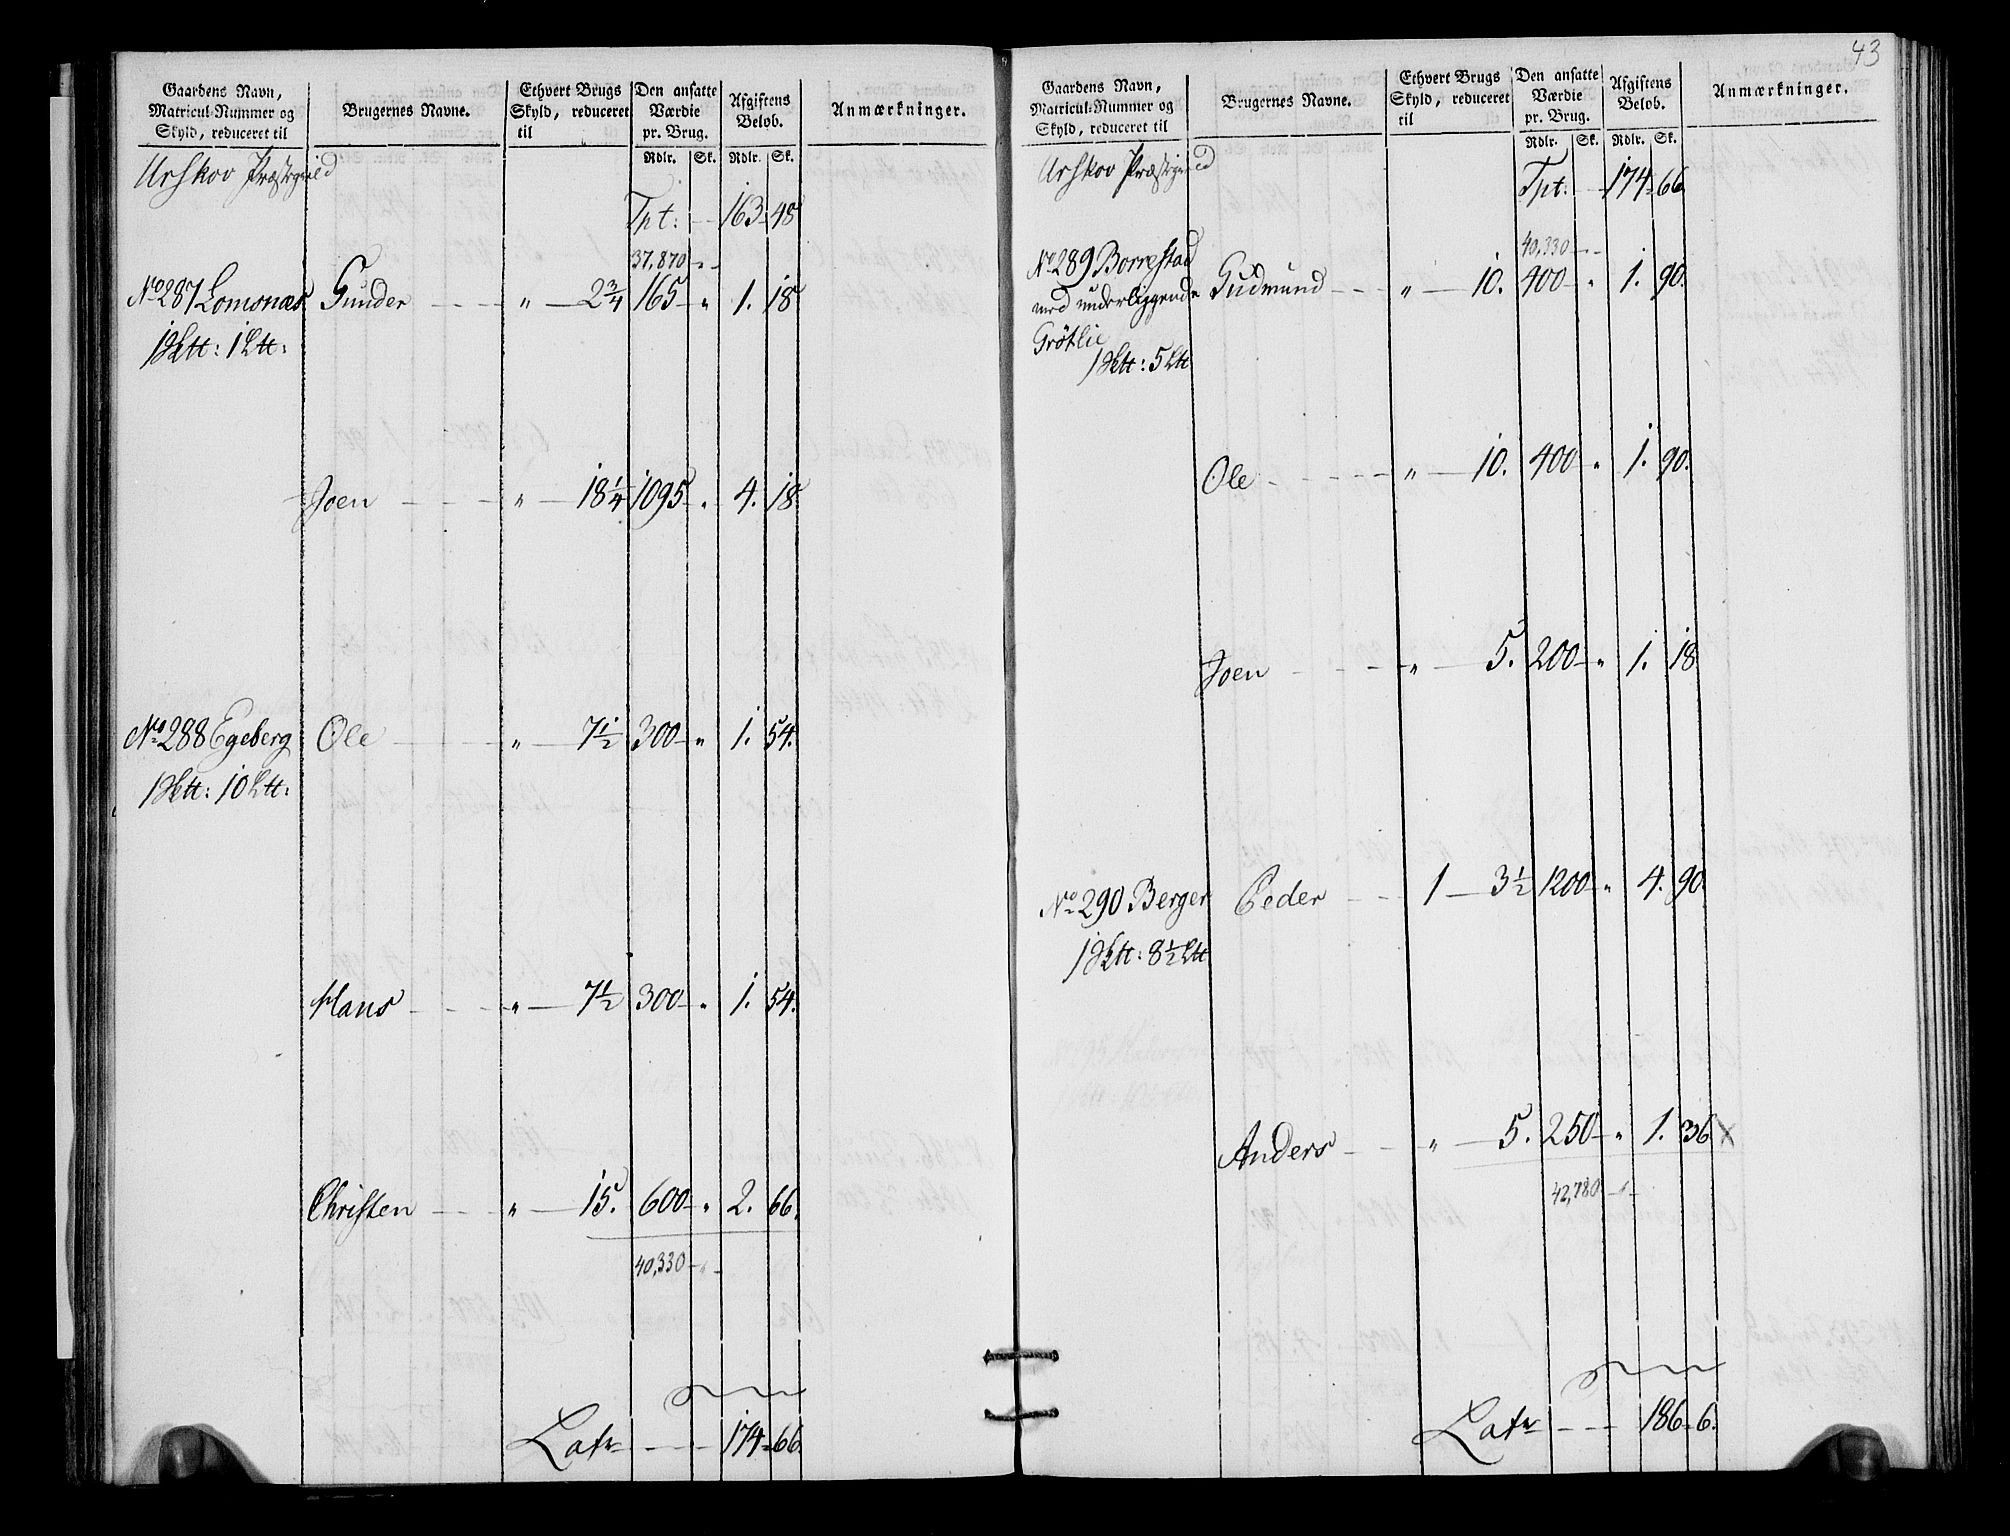 Gaardens Navn, Matricul-Nummer og Skyld, reduceret til | Brugernes Navne. | Ethvert Brugs Skyld, reduceret til | Den ansatte Værdie pr. Brug. | Afgiftens Beløb. | Anmærkninger.
Rdlr. Sk. Rdlr. Sk.
Urskov Præstegield
Tpt: — 163 - 48
37,870 - " -
No 287 Lomsnæs Gunder — — " — 2 3/4 165 - " 1. 18
1 Sktt: 1 Ltt:
Joen — — — " — 18 1/4 1095 - " 4. 18
No 288 Egeberg Ole — — — " — 7 1/2 300 - " 1. 54.
1 Sktt: 10 Ltt:
Hans — — — " — 7 1/2 300 - " 1. 54.
Christen — — " — 15. 600 - " 2. 66.
40,330 - " -
Latr — — 174 - 66.
43
Gaardens Navn, Matricul-Nummer og Skyld, reduceret til | Brugernes Navne. | Ethvert Brugs Skyld, reduceret til | Den ansatte Værdie pr. Brug. | Afgiftens Beløb. | Anmærkninger.
Rdlr. Sk. Rdlr. Sk.
Urskov Præstegield
Tpt: — 174 - 66
40,330 - -
No 289 Borrestad Gudmund — — " — 10. 400 - " 1. 90.
med underliggende
Grötlie
1 Sktt: 5 Ltt
Ole — — — " — 10. 400 - " 1. 90.
Joen — — — " — 5. 200 - " 1. 18
No 290 Berger Peder — — 1 — 3 1/2 1200 - " 4. 90.
1 Sktt: 8 1/2 Ltt
Anders — — " — 5. 250 - " 1. 36 X
42,780 - " -
Latr — — 186 - 6.